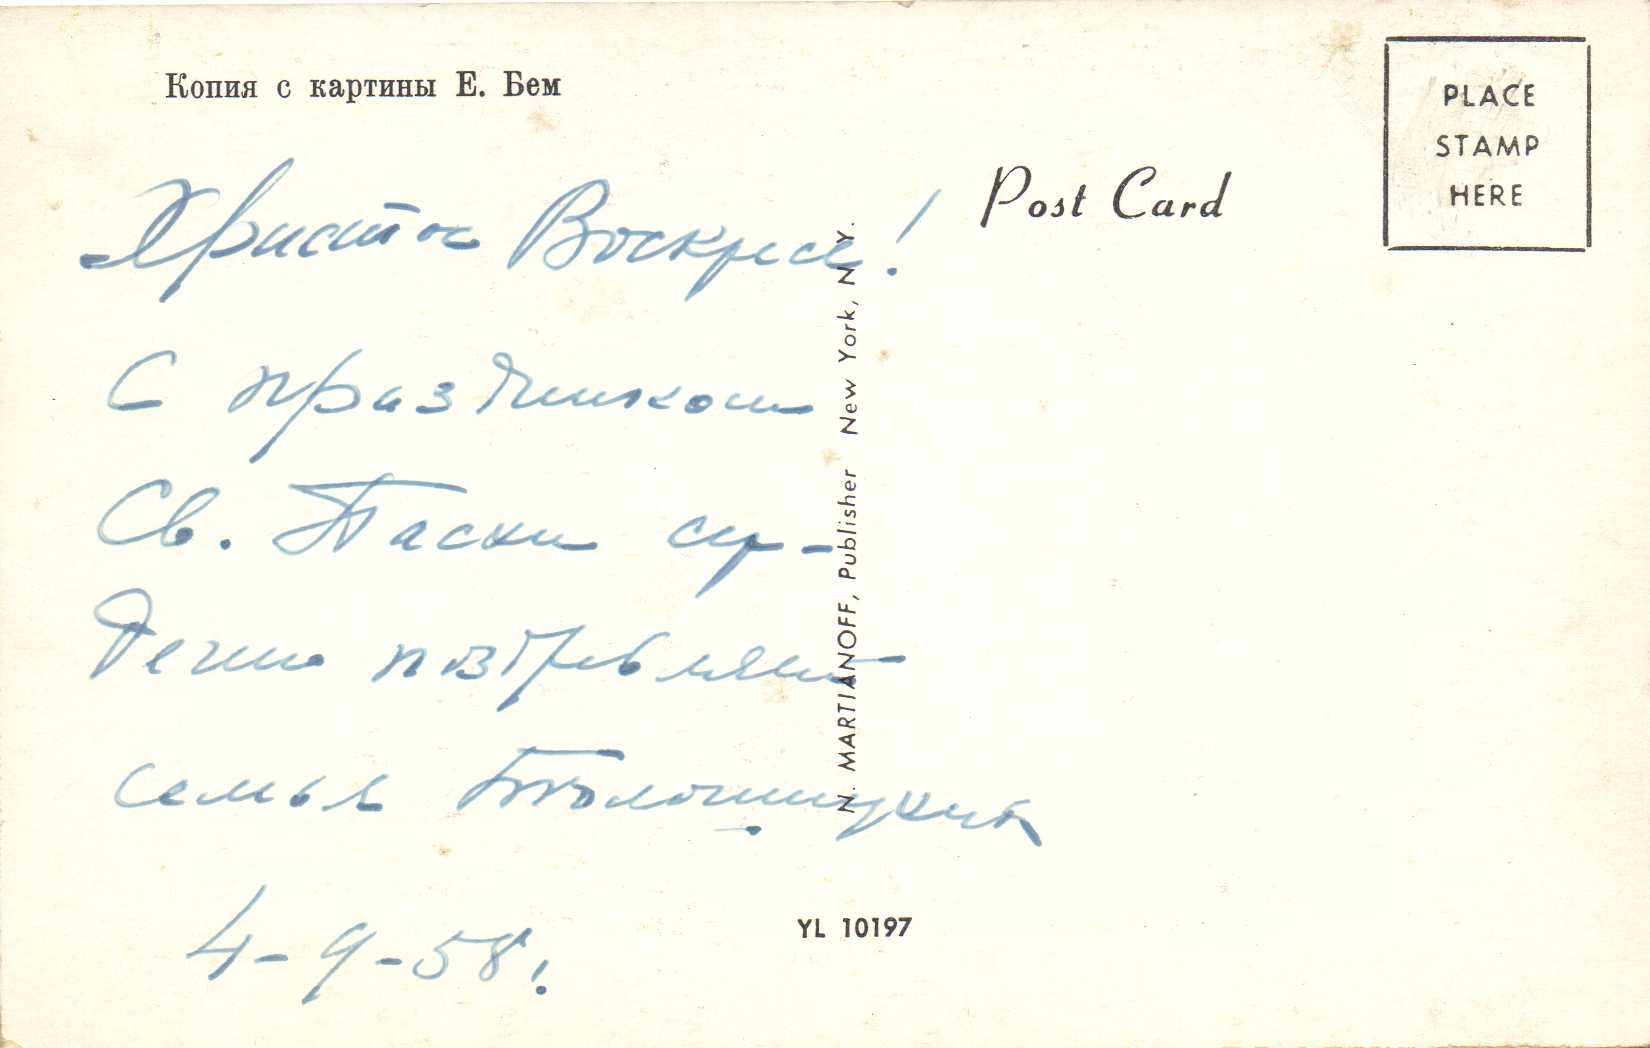 Копия с картины Е. Бем
Христос Воскресе!
С праздником
Св. Пасхи сер-
дечно поздравляет
семья
4-9-58.
Post Card
PLACE
STAMP
HERE
N. MARTIANOFF, Publisher New York, N. Y.
YL 10197